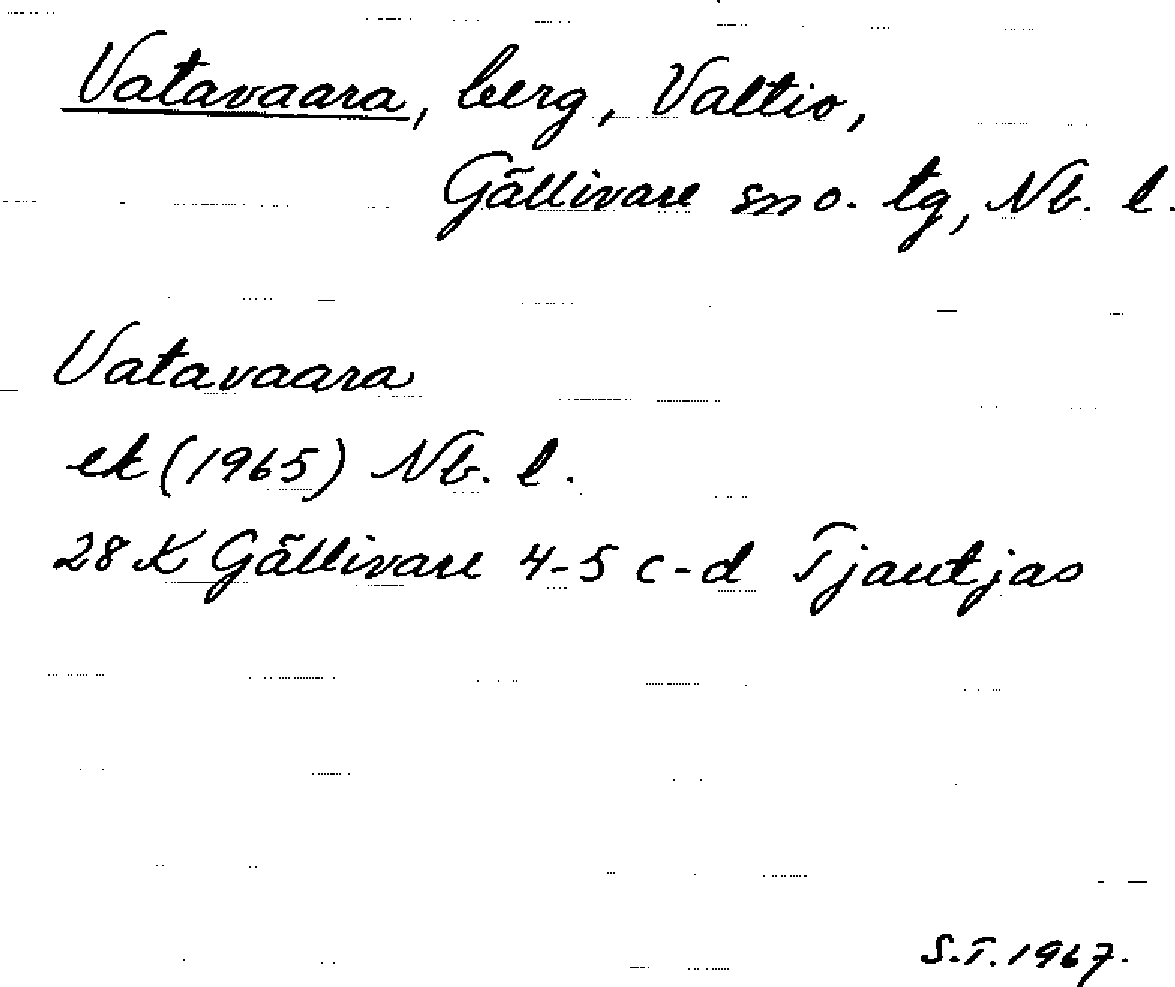 Vatavaara, berg, Valtio,
Gällivare sn o. tg, Nb. l.
Vatavaara
ek (1965) Nb. l.
28 K Gällivare 4-5 c-d Tjautjas
S.T. 1967.